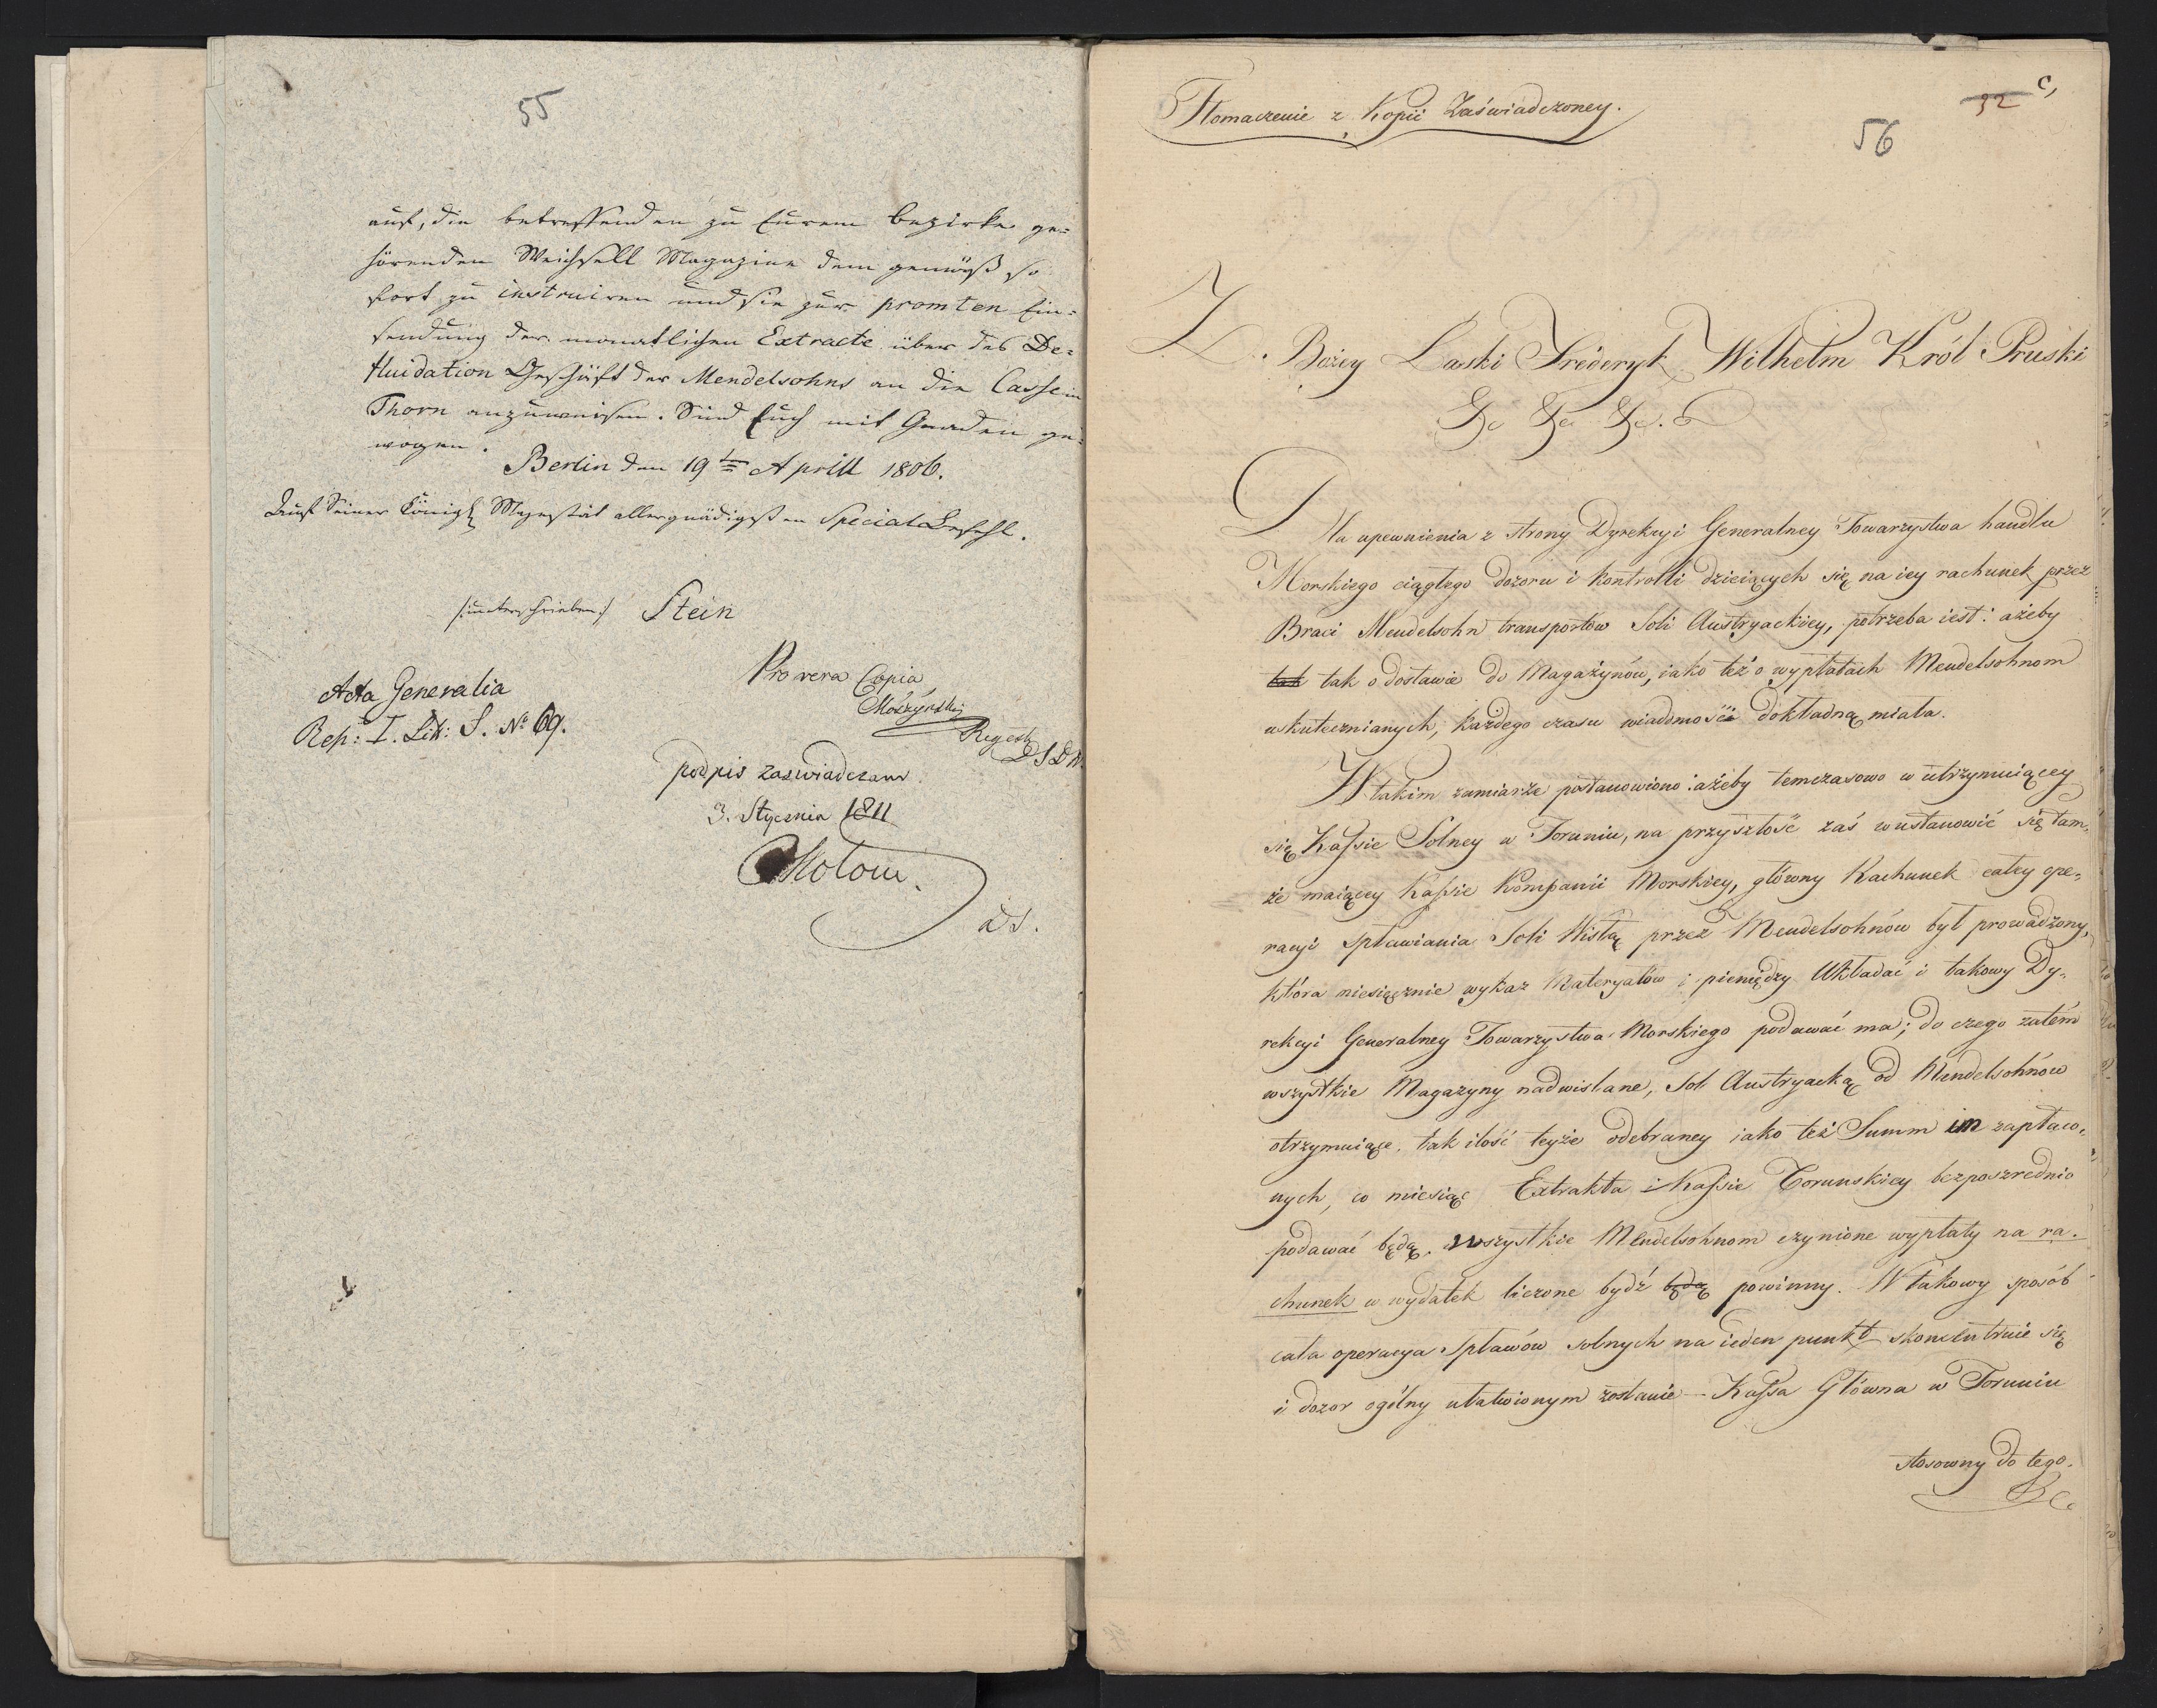 55
auf, die betreffenden zu Eurem Bezirke ge=
hörenden Weichsell Magazine dem gemäß so
fort zu instruiren und sie zur promten Ein=
sendung der monatlichen Extracte über das De=
fluidation Geschäft der Mendelsohns an die Casse in
Thorn anzuweisen. Sind Euch mit Gnaden ge=
wogen.
Berlin den 19ten Aprill 1806.
Auf Seiner Königl. Majestät allergnädigsten Special Befehl.
/:unterschrieben:/ Stein
Acta Generalia
Rep: I. Litt: S. No 69.
Pro vera Copia
Regestr
podpis zaswiadczam
3. Stycznia 1811
DS.
Tłomaczenie z Kopii Zaświadczoney.
32 c,
56
Z Bożey Łaski Fréderyk Wilhelm Król Pruski
&c &c &c.
Dla upewnienia z strony Dyrekcyi Generalney Towarzystwa handlu
Morskiego ciągłego dozoru i kontrolli dzieiących się na iey rachunek przez
Braci Mendelsohn transportow Soli Austryackiey, potrzeba iest: ażeby
tak tak o dostawie do Magazynów, iako też o wypłatach Mendelsohnom
uskutecznianych, każdego czasu wiadomość dokładną miała.
W takim zamiarze postanowiono: ażeby temczasowo w utrzymuiącey
się Kassie Solney w Toruniu, na przyszłość zaś w ustanowić się tam=
że maiącey Kassie Kompanii Morskiey, główny Rachunek całey ope=
racyi spławiania Soli Wisłą przez Mendelsohnów był prowadzony,
która miesięcznie wykaz Materyałów i pieniędzy Układać i takowy Dy=
rekcyi Generalney Towarzystwa Morskiego podawać ma; do czego zatém
wszystkie Magazyny nadwislane, Sol Austryacką od Mendelsohnów
otrzymuiące, tak ilość teyże odebraney iako też Summ im zapłaco=
nych, co miesiąc Extrakta i Kassie Torunskiey bezposzrednio
podawać będą. wszystkie Mendelsohnom czynione wypłaty na ra=
chunek w wydatek liczone bydź będą powinny. W takowy sposób
cała operacya Spławów solnych na ieden punkt skoncentruie się
i dozor ogólny ułatwionym zostanie - Kassa Główna w Toruniu
stosowny do tego.